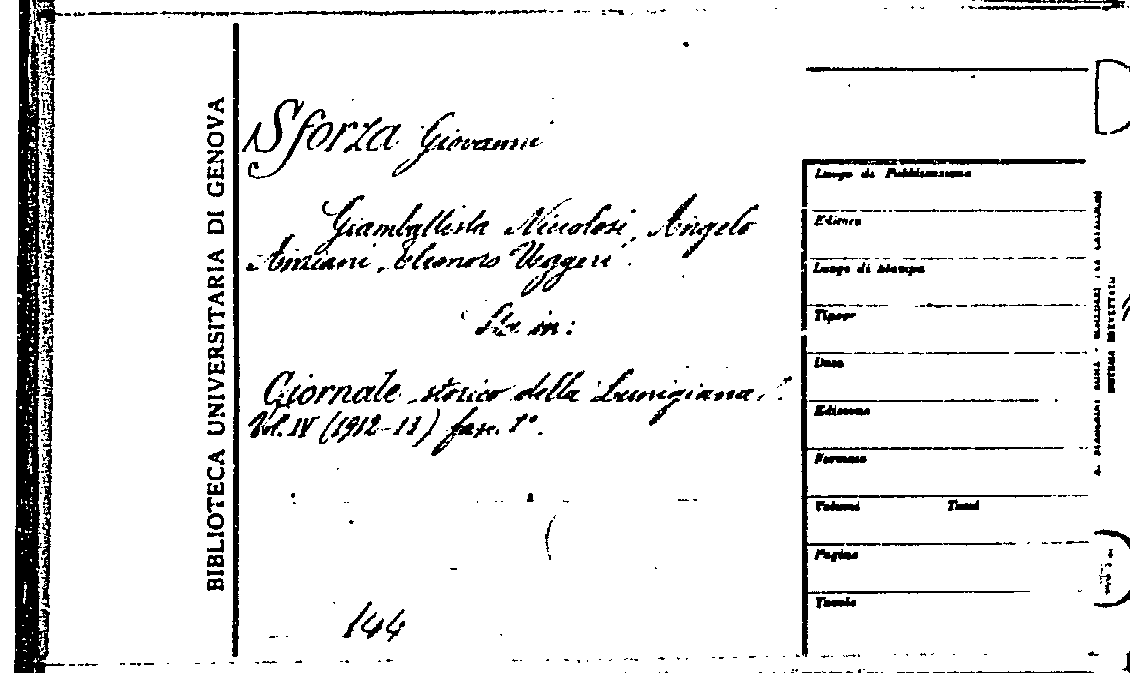 BIBLIOTECA UNIVERSITARIA DI GENOVA
Sforza Giovanni
Giambattista Nicolosi, Angelo
Anziani, Eleonoro Uggeri.
Sta in:
Giornale storico della Lunigiana.
Vol. IV (1912-13) fasc. 1°.
144
Luogo di Pubblicazione
Editore
Luogo di stampa
Tipogr
Data
Edizione
Formato
Volumi Tomi
Pagine
Tavole